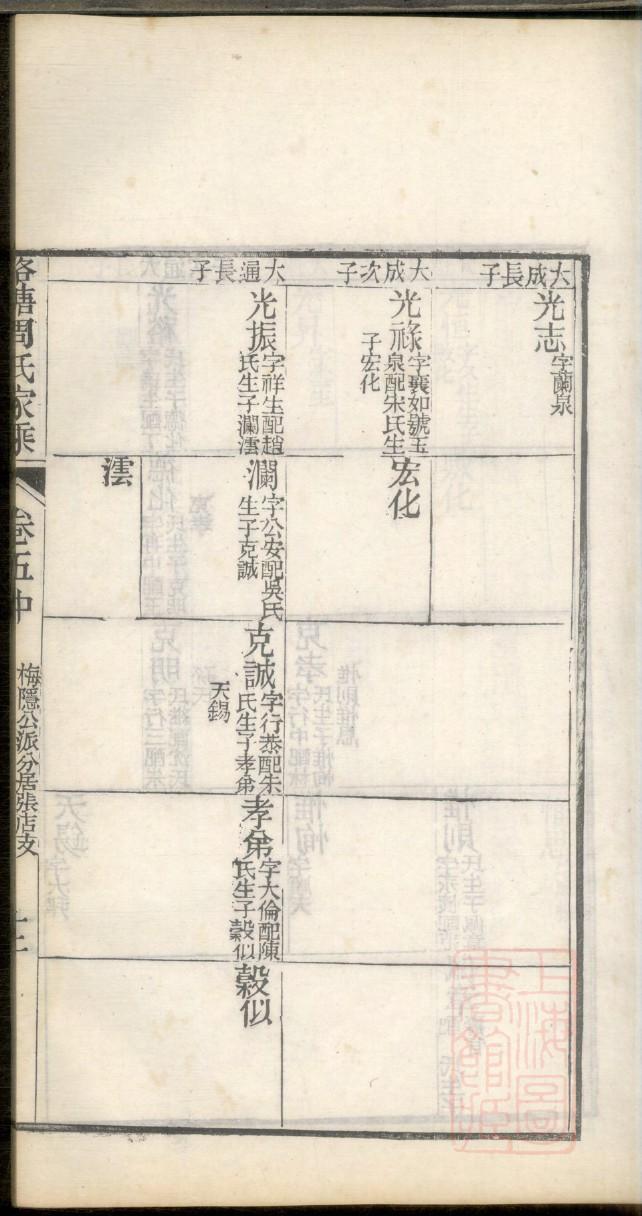 大成長子
光志
字蘭泉
大成次子
光祿
字襄如號玉
泉配宋氏生
子宏化
宏化
大通長子
光振
字祥生配趙
氏生子瀾澐
瀾
字公安配吳氏
生子克誠
克誠
字行恭配朱
氏生子孝弟
天錫
孝弟
字大倫配陳
氏生子穀似
穀似
澐
塘周氏家乘
卷五中
梅隱公派分居張店支
上海圖書館藏